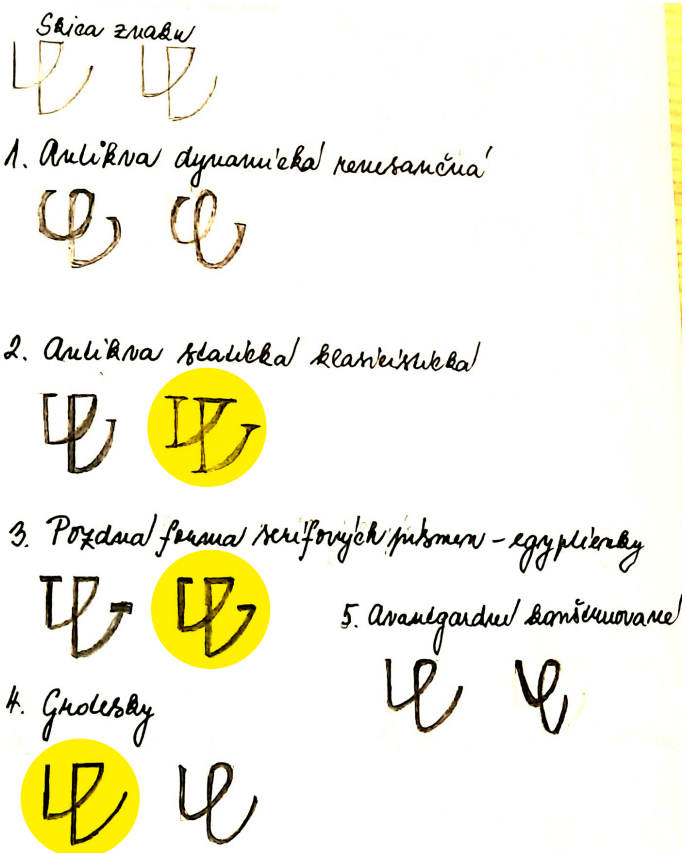 Skica znaku
1. Antikva dynamická renesančná
2. Antikva statická klasicistická
3. Pozdná forma serifových písmen - egyptienky
5. Avantgardné konštruované
4. Grotesky